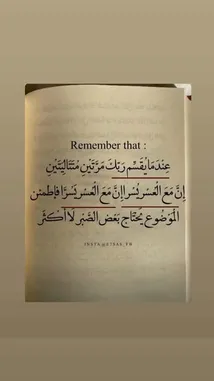 Remember that :
عِنْدَمَا يُقْسِم رَبّكَ مَرَّتَيْنِ مُتَتَالِيَتَيْنِ
إِنَّ مَعَ الْعسْر يُسْرا إِنَّ مَعَ الْعسْر يُسْرًا فإطمئن
الْمَوْضُوع يَحْتَاج بَعْض الصَّبْر لَا أَكْثَر